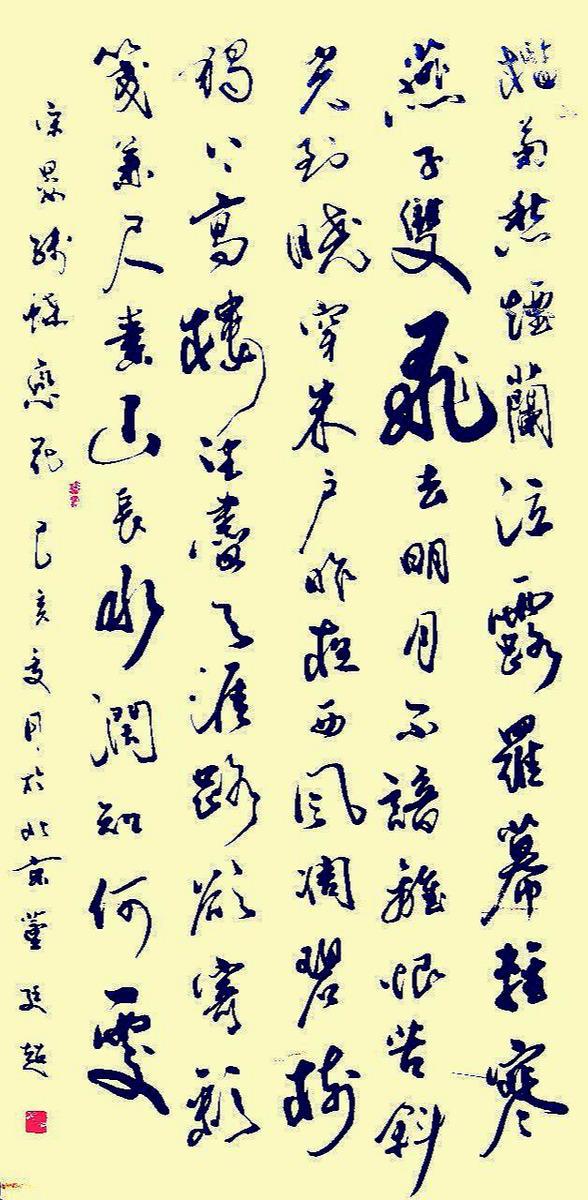 檻菊愁煙蘭泣露羅幕輕寒
燕子雙飛去明月不諳離恨苦斜
光到曉穿朱戶昨夜西風凋碧樹
獨上高樓望盡天涯路欲寄彩
箋兼尺素山長水闊知何處
宋晏殊蝶戀花 己亥夏月於北京董廷超